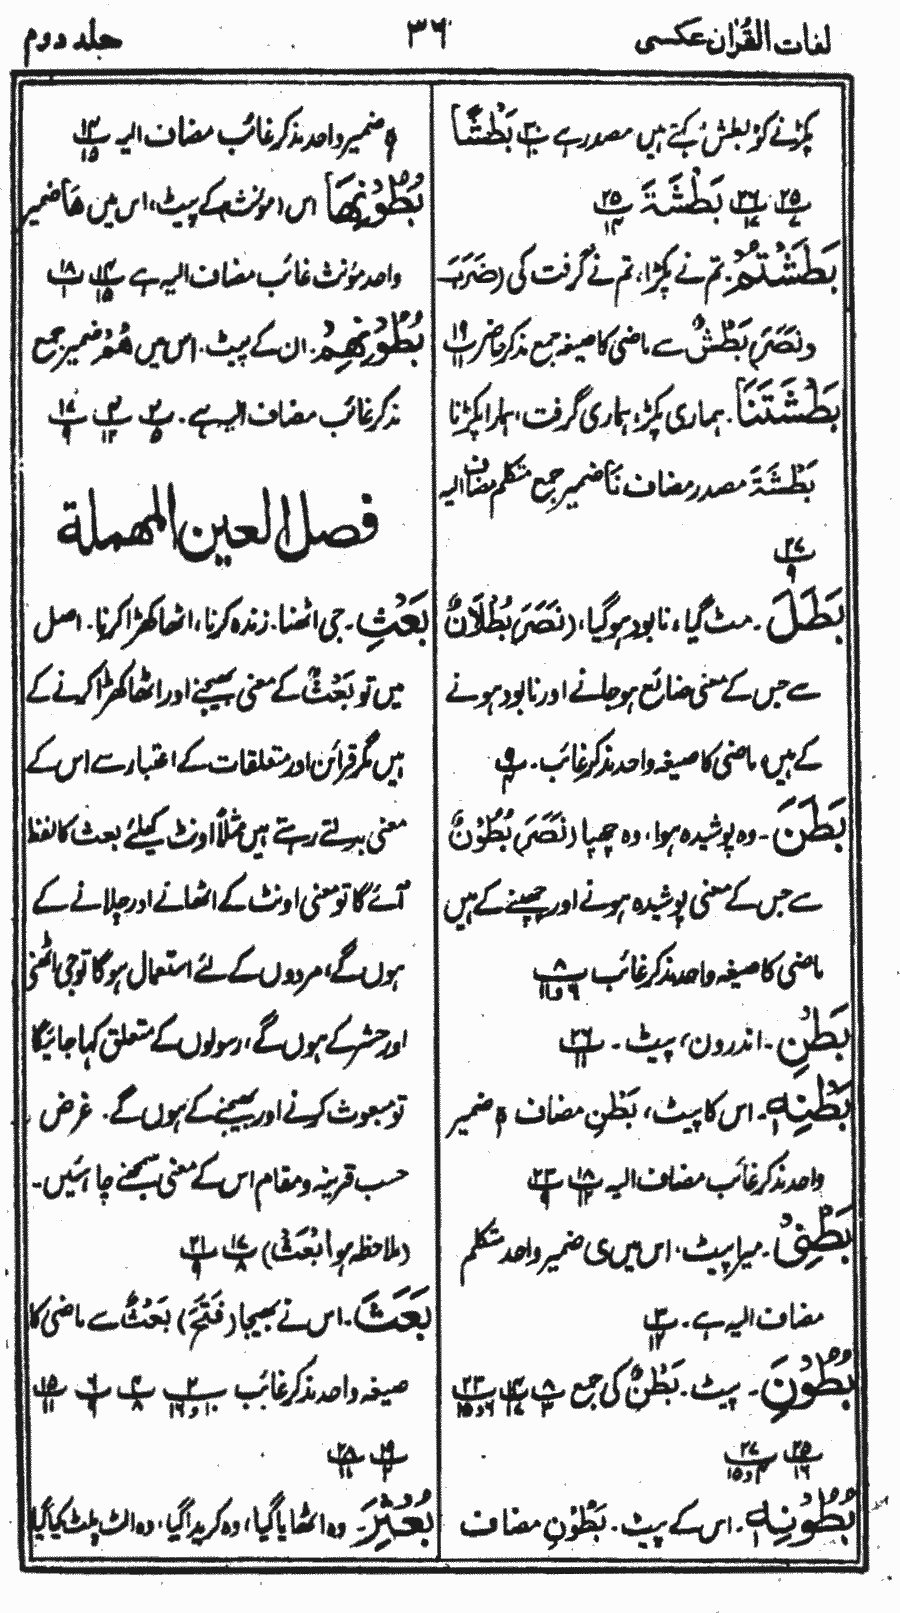 لغات القرآن عکسی
۳۶
جلد دوم
پکڑنے کو بطش کہتے ہیں مصدر ہے پ۲۰ بَطْشًا
پ۲۵/۷ پ۲۶/۱۷ بَطْشَةَ پ۲۵/۱۴
بَطَشْتُمْ۔ تم نے پکڑا، تم نے گرفت کی (ضَرَبَ
و نَصَرَ) بَطْشٌ سے ماضی کا صیغہ جمع مذکر حاضر پ۱۹/۱۱
بَطْشَتَنَا۔ ہماری پکڑ، ہماری گرفت، ہمارا پکڑنا
بَطْشَةَ مصدر مضاف نَا ضمیر جمع متکلم مضاف الیہ
پ۲۷/۹
بَطَلَ۔ مٹ گیا، نابود ہوگیا، (نَصَرَ) بُطْلَانٌ
سے جس کے معنی ضائع ہو جانے اور نابود ہونے
کے ہیں، ماضی کا صیغہ واحد مذکر غائب۔ پ۹/۴
بَطَنَ۔ وہ پوشیدہ ہوا، وہ چھپا (نَصَرَ) بُطُوْنٌ
سے جس کے معنی پوشیدہ ہونے اور چھپنے کے ہیں
ماضی کا صیغہ واحد مذکر غائب پ۸/۶ و ۱۱
بَطْنِ۔ اندرون، پیٹ۔ پ۲۶/۱۱
بَطْنِهٖ۔ اس کا پیٹ، بَطْنِ مضاف ہٖ ضمیر
واحد مذکر غائب مضاف الیہ پ۱۸/۱۲ پ۲۳/۹
بَطْنِیْ۔ میرا پیٹ، اس میں ی ضمیر واحد متکلم
مضاف الیہ ہے۔ پ۳/۱۲
بُطُوْنِ۔ پیٹ۔ بَطْنٌ کی جمع پ۸/۳ پ۱۴/۱۷ پ۲۳/۶ و ۱۵
پ۲۵/۱۶ پ۲۷/۴ و ۱۵
بُطُوْنِهٖ۔ اس کے پیٹ۔ بُطُوْنِ مضاف
ہٖ ضمیر واحد مذکر غائب مضاف الیہ پ۱۴/۱۵
بُطُوْنِهَا اس (مؤنث) کے پیٹ، اس میں هَا ضمیر
واحد مؤنث غائب مضاف الیہ ہے پ۱۴/۱۵ پ۱۸/۱
بُطُوْنِهِمْ۔ ان کے پیٹ۔ اس میں هُمْ ضمیر جمع
مذکر غائب مضاف الیہ ہے۔ پ۲/۵ پ۴/۱۲ پ۱۷/۹
فصل العین المهملة
بَعْثِ۔ جی اٹھنا۔ زندہ کرنا، اٹھا کھڑا کرنا۔ اصل
میں تو بَعْثٌ کے معنی بھیجنے اور اٹھا کھڑا کرنے کے
ہیں مگر قرائن اور متعلقات کے اعتبار سے اس کے
معنی بدلتے رہتے ہیں مثلاً اونٹ کیلئے بعث کا لفظ
آئے گا تو معنی اونٹ کے اٹھانے اور چلانے کے
ہوں گے، مردوں کے لئے استعمال ہوگا تو جی اٹھنے
اور حشر کے ہوں گے، رسولوں کے متعلق کہا جائیگا
تو مبعوث کرنے اور بھیجنے کے ہوں گے۔ غرض
حسب قرینہ و مقام اس کے معنی سمجھنے چاہئیں۔
(ملاحظہ ہو اُبْعَثُ) پ۱۷/۸ پ۲۱/۹
بَعَثَ۔ اس نے بھیجا (فَتَحَ) بَعْثٌ سے ماضی کا
صیغہ واحد مذکر غائب پ۲/۱۰ و ۱۶ پ۴/۸ پ۶/۹ پ۱۵/۱۱
پ۱۹/۲ پ۲۸/۱۱
بُعْثِرَ۔ وہ اٹھایا گیا، وہ کریدا گیا، وہ الٹ پلٹ کیا گیا